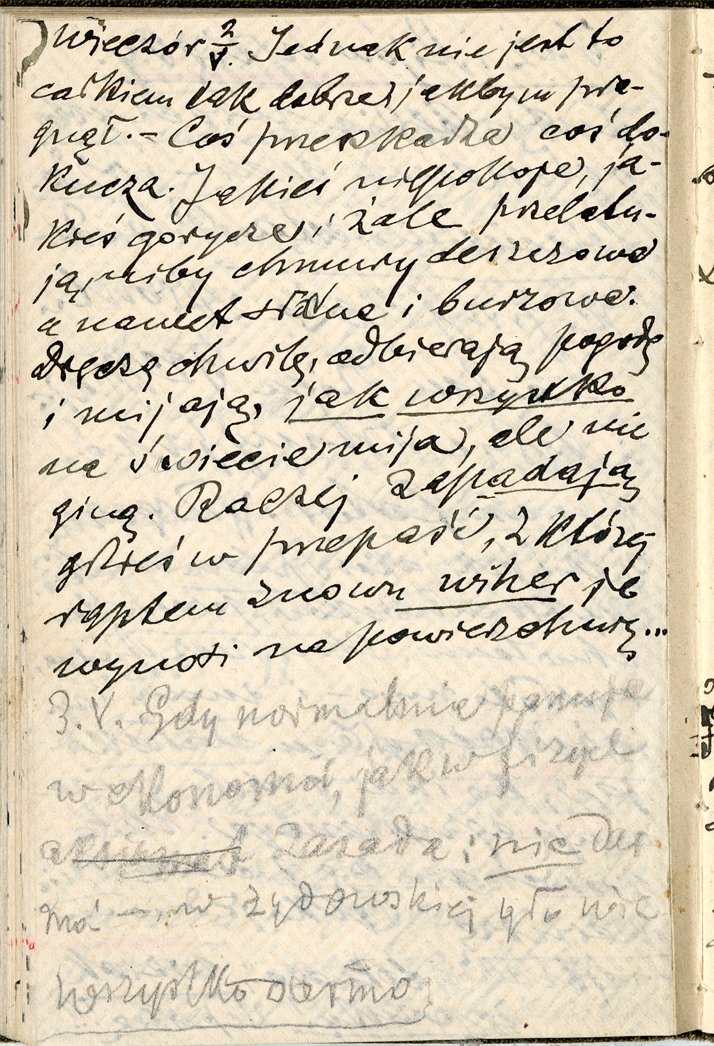 wieczór 2/V. Jednak nie jest to
całkiem tak dobrze, jakbym pra-
gnął. – Coś przeszkadza coś do-
kucza. Jakieś niepokoje, ja-
kieś gorycze, i żale przelatu-
ją, niby chmury deszczowe
a nawet i burzowe.
Dręczą chwilę, odbierają pogodę
i mijają, jak wszystko
na świecie mija, ale nie
giną. Raczej zapadają
gdzieś w przepaść, z której
raptem znowu wicher je
wynosi na powierzchnię...
3.V. Gdy normalnie panuje
w ekonomii, jak w fizyce
zasada: nic dar
mo – w żydowskiej
wszystko darmo